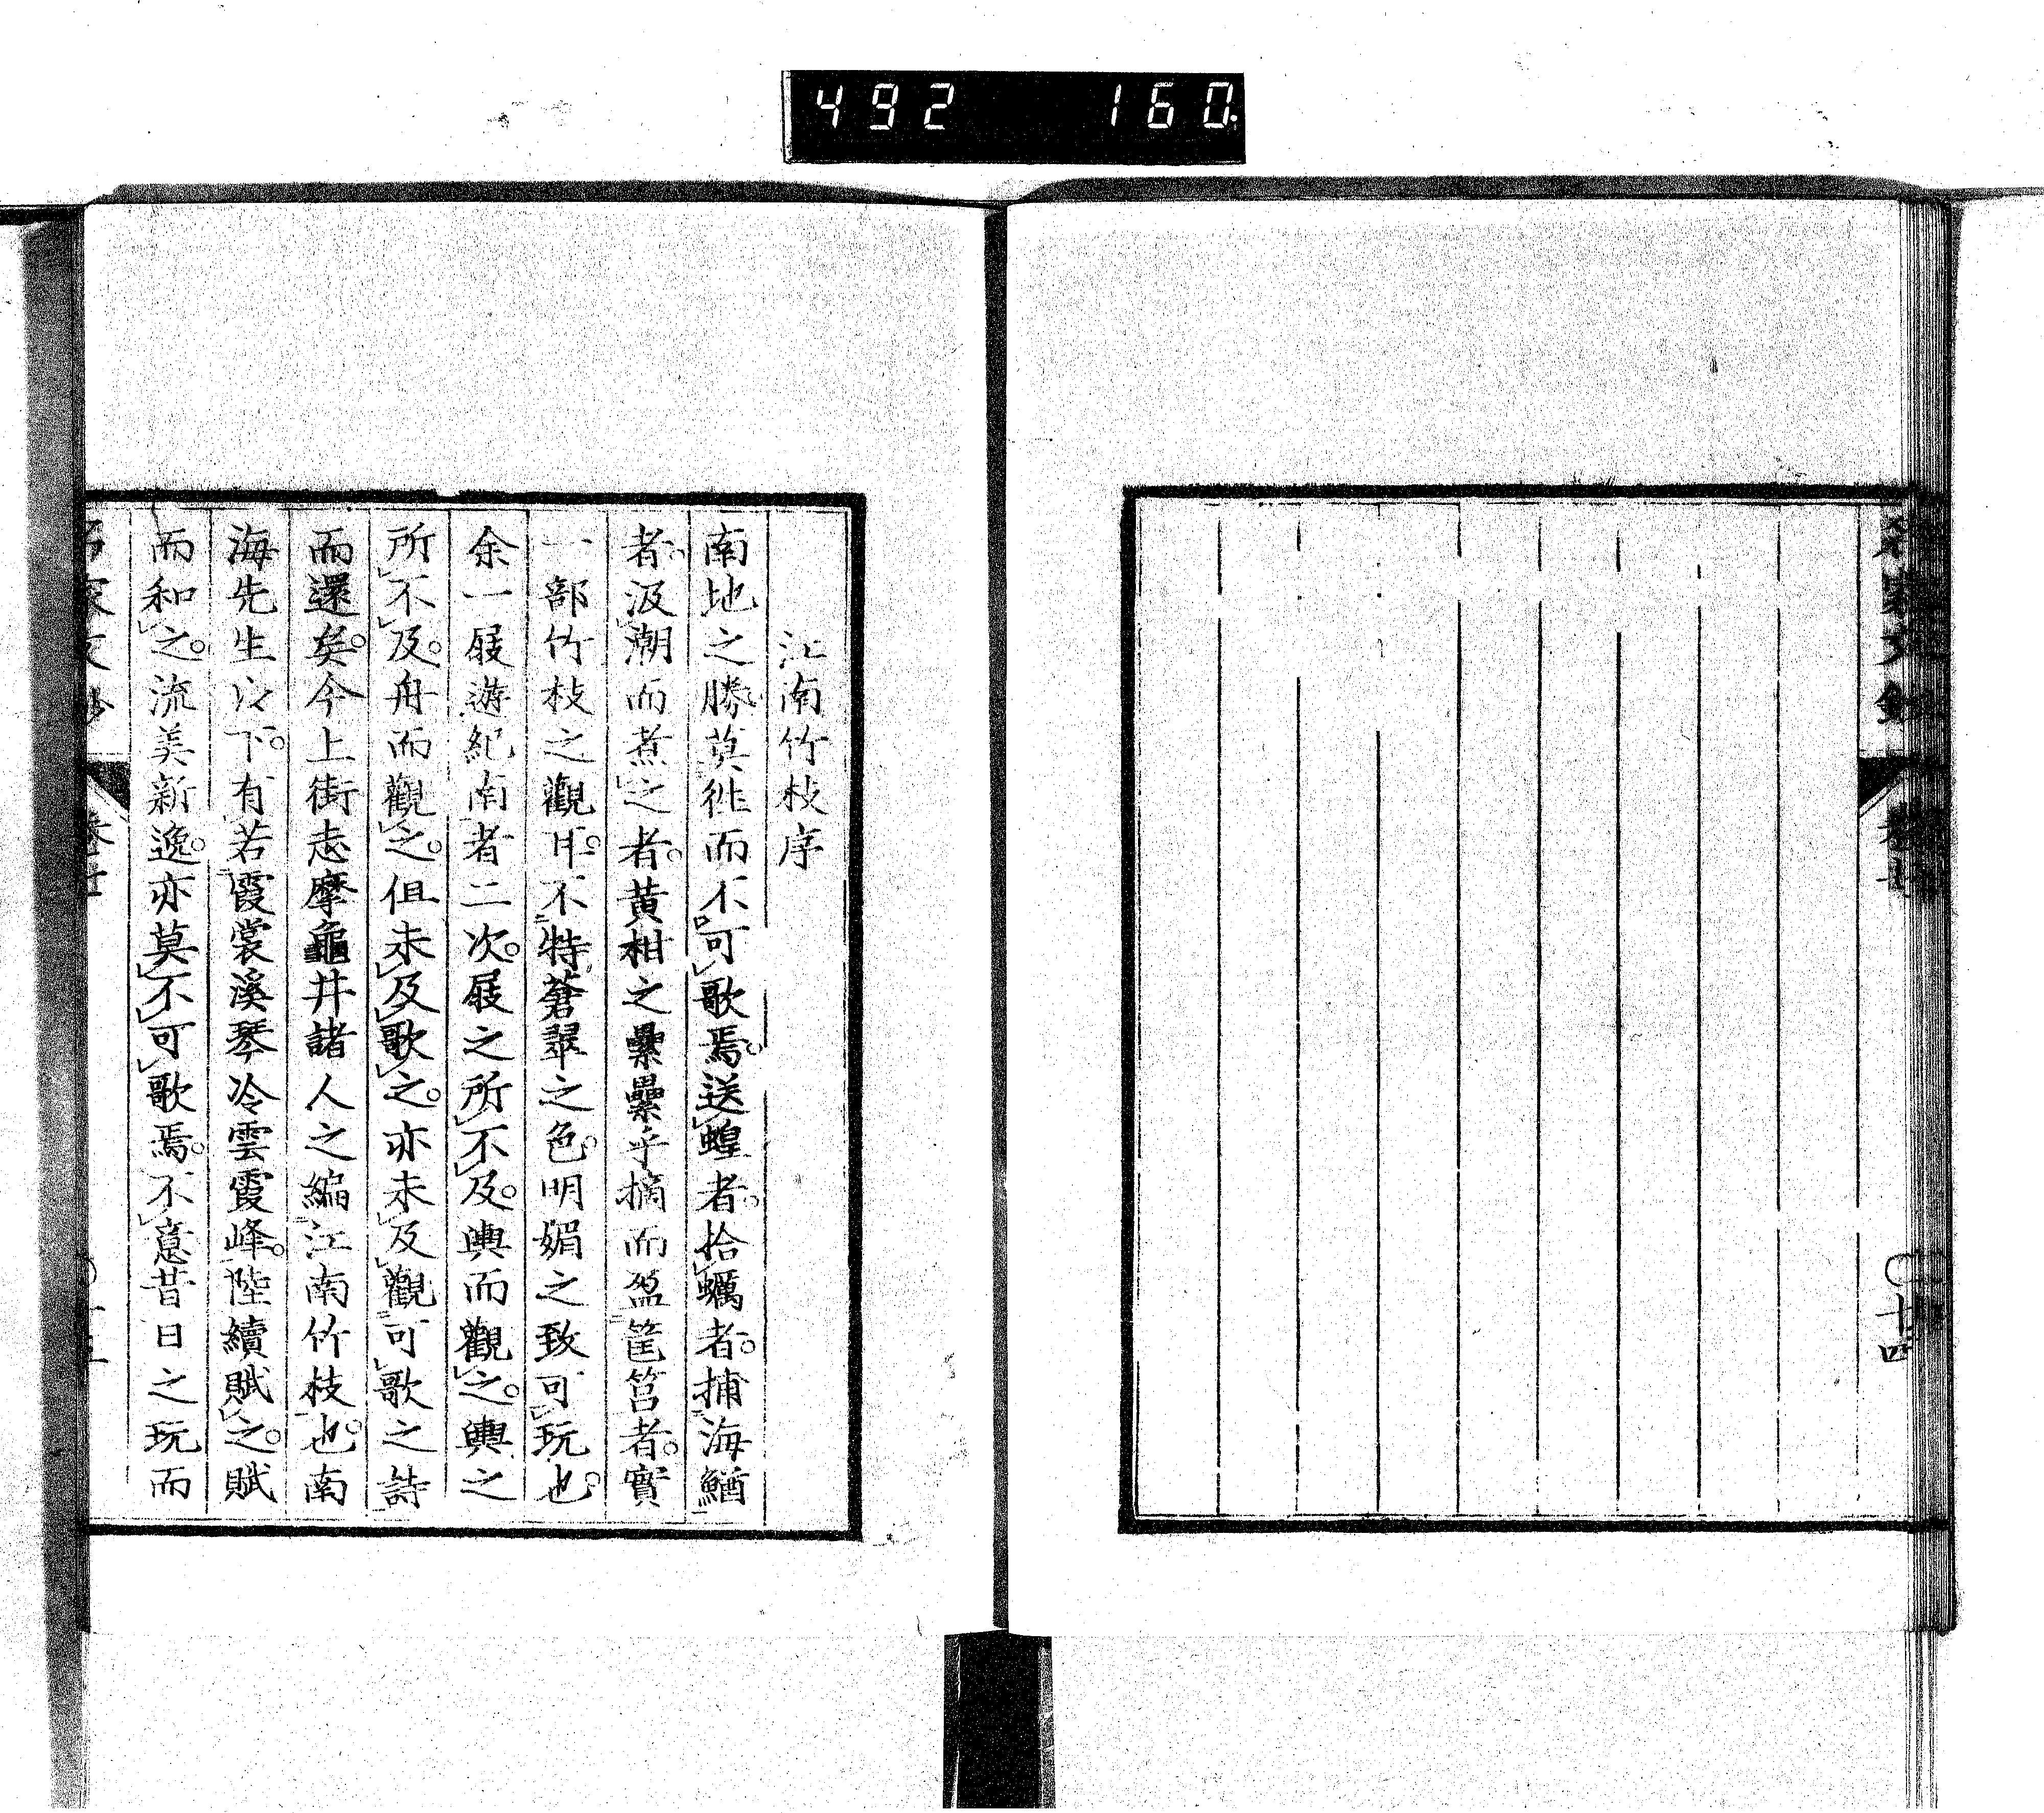 492 160
江南竹枝序
南地之勝莫徃而不可歌焉。送蝗者。拾蠣者。捕海鰌
者。汲潮而煮之者。黄柑之纍纍乎摘而盈筐筥者。實
一部竹枝之觀耳。不特蒼翠之色。明媚之致可玩也。
余一屐遊紀南者二次。屐之所不及。輿而觀之。輿之
所不及。舟而觀之。但未及歌之。亦未及觀可歌之詩
而還矣。今上街志摩龜井諸人之編江南竹枝也。南
海先生以下。有若霞裳溪琴冷雲霞峰。陸續賦之。賦
而和之。流美新逸。亦莫不可歌焉。不意昔日之玩而